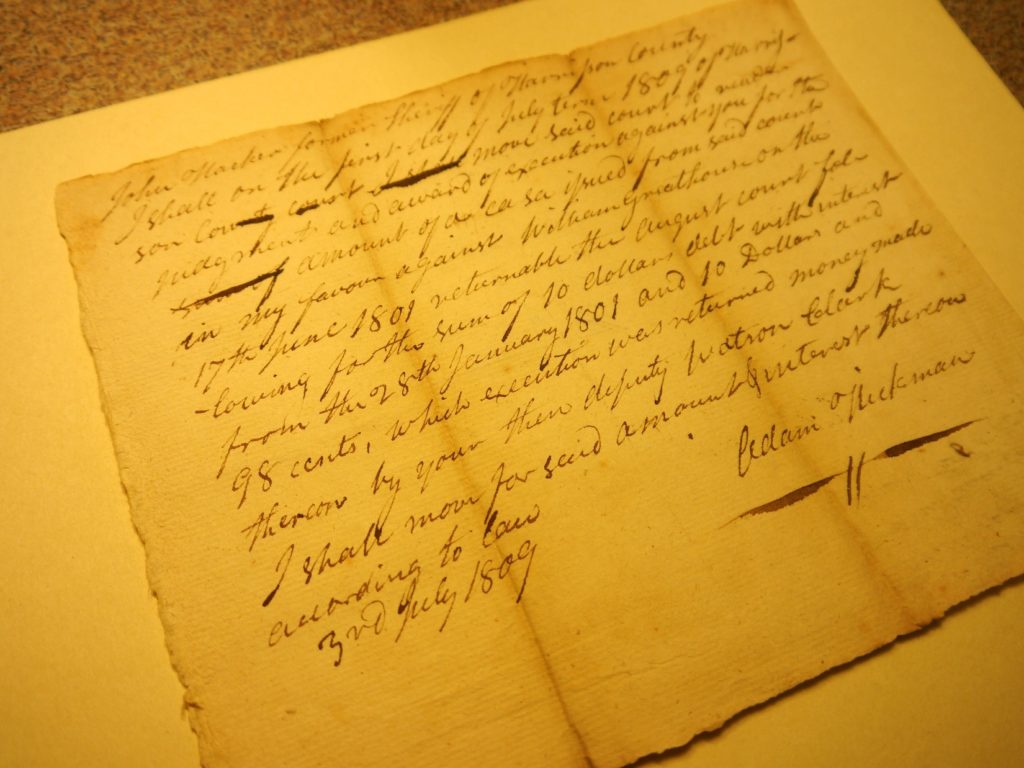 John Hacker former Sheriff of Harrison County
I shall on the first day of July term 1809 of Harri-
son County court I shall move said court to render
Judgment and award of execution against you for the
amount of a ca sa issued from said county
in my favour against William Griathouse on the
17th June 1801 returnable the august court fol-
-lowing for the sum of 10 dollars debt with interest
from the 28th January 1801 and 10 Dollars and
98 cents, which execution was returned money made
thereon by your then deputy Watson Clark
I shall move for said amount & interest thereon
according to law
Adam Hickman
3rd July 1809